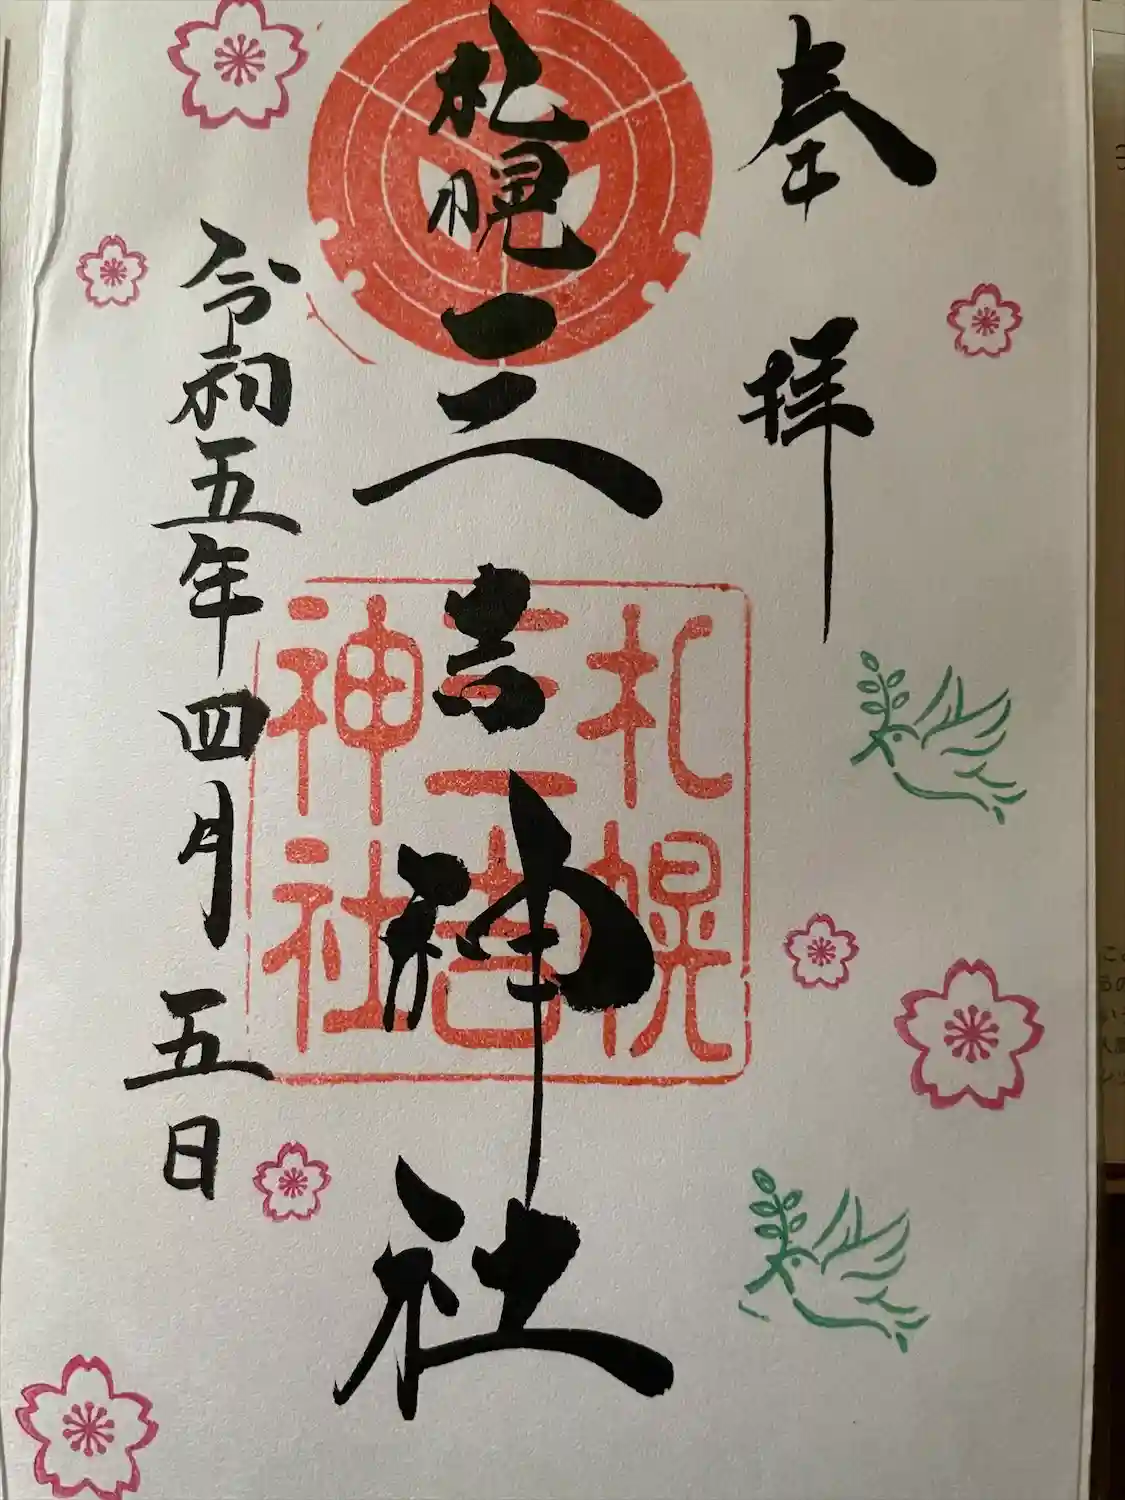 奉拝
札幌三吉神社
札幌
三吉
神社
令和五年四月五日